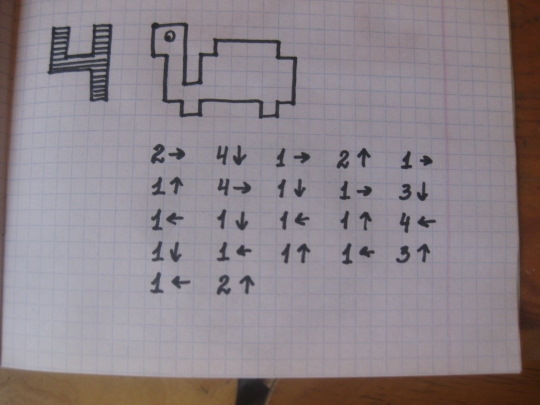 4
2→ 4↓ 1→ 2↑ 1→
1↑ 4→ 1↓ 1→ 3↓
1← 1↓ 1← 1↑ 4←
1↓ 1← 1↑ 1← 3↑
1← 2↑